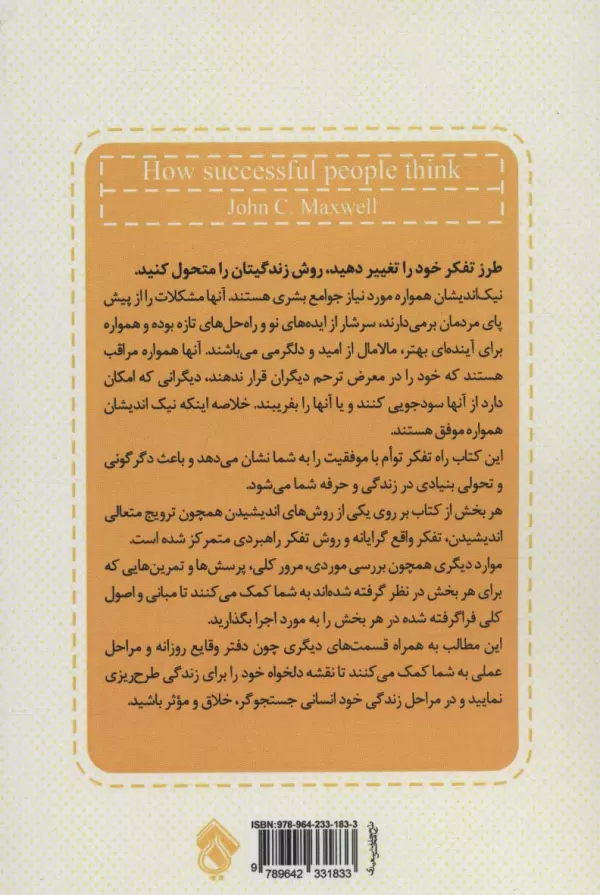 How successful people think
John C. Maxwell
طرز تفکر خود را تغییر دهید، روش زندگیتان را متحول کنید.
نیک‌اندیشان همواره مورد نیاز جوامع بشری هستند. آنها مشکلات را از پیش
پای مردمان برمی‌دارند، سرشار از ایده‌های نو و راه‌حل‌های تازه بوده و همواره
برای آینده‌ای بهتر، مالامال از امید و دلگرمی می‌باشند. آنها همواره مراقب
هستند که خود را در معرض ترحم دیگران قرار ندهند، دیگرانی که امکان
دارد از آنها سودجویی کنند و یا آنها را بفریبند. خلاصه اینکه نیک اندیشان
همواره موفق هستند.
این کتاب راه تفکر توأم با موفقیت را به شما نشان می‌دهد و باعث دگرگونی
و تحولی بنیادی در زندگی و حرفه شما می‌شود.
هر بخش از کتاب بر روی یکی از روش‌های اندیشیدن همچون ترویج متعالی
اندیشیدن، تفکر واقع گرایانه و روش تفکر راهبردی متمرکز شده است.
موارد دیگری همچون بررسی موردی، مرور کلی، پرسش‌ها و تمرین‌هایی که
برای هر بخش در نظر گرفته شده‌اند به شما کمک می‌کنند تا مبانی و اصول
کلی فراگرفته شده در هر بخش را به مورد اجرا بگذارید.
این مطالب به همراه قسمت‌های دیگری چون دفتر وقایع روزانه و مراحل
عملی به شما کمک می‌کنند تا نقشه دلخواه خود را برای زندگی طرح‌ریزی
نمایید و در مراحل زندگی خود انسانی جستجوگر، خلاق و مؤثر باشید.
ISBN:978-964-233-183-3
9 789642 331833